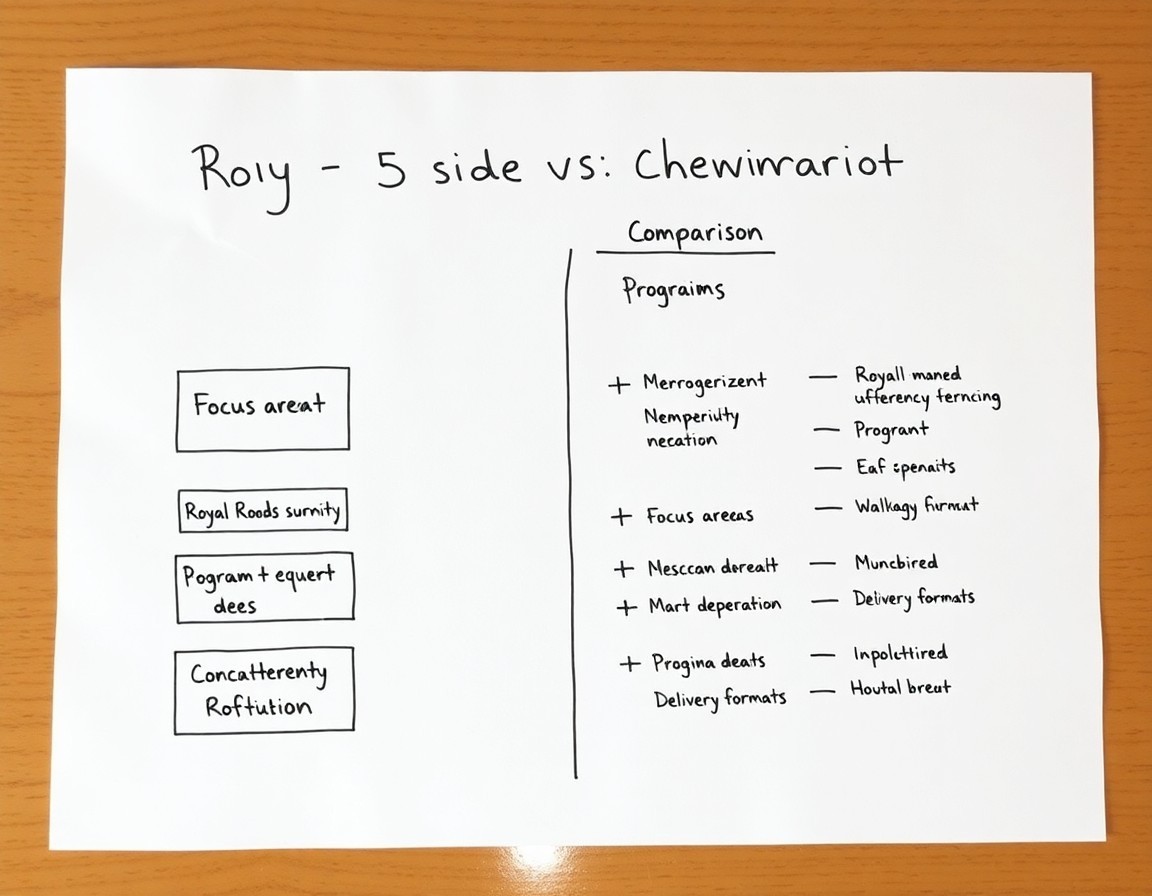 Roıy - 5 side vs: Chewinrariot
Comparison
Prograims
Focus areat
Royal Roods surnity
Pogram + equert
dees
Concatterenty
Roftution
+ Merrogerizent
Nemperiulty
necation
+ Focus areeas
+ Nesccan dereatt
+ Mart deperation
+ Progina deats
Delivery formats
— Royall maned
ufferency ferncing
— Progrant
— Eaf spenaits
— Walkagy furmut
— Muncbired
— Delivery formats
— Inpolettired
— Houtal breut